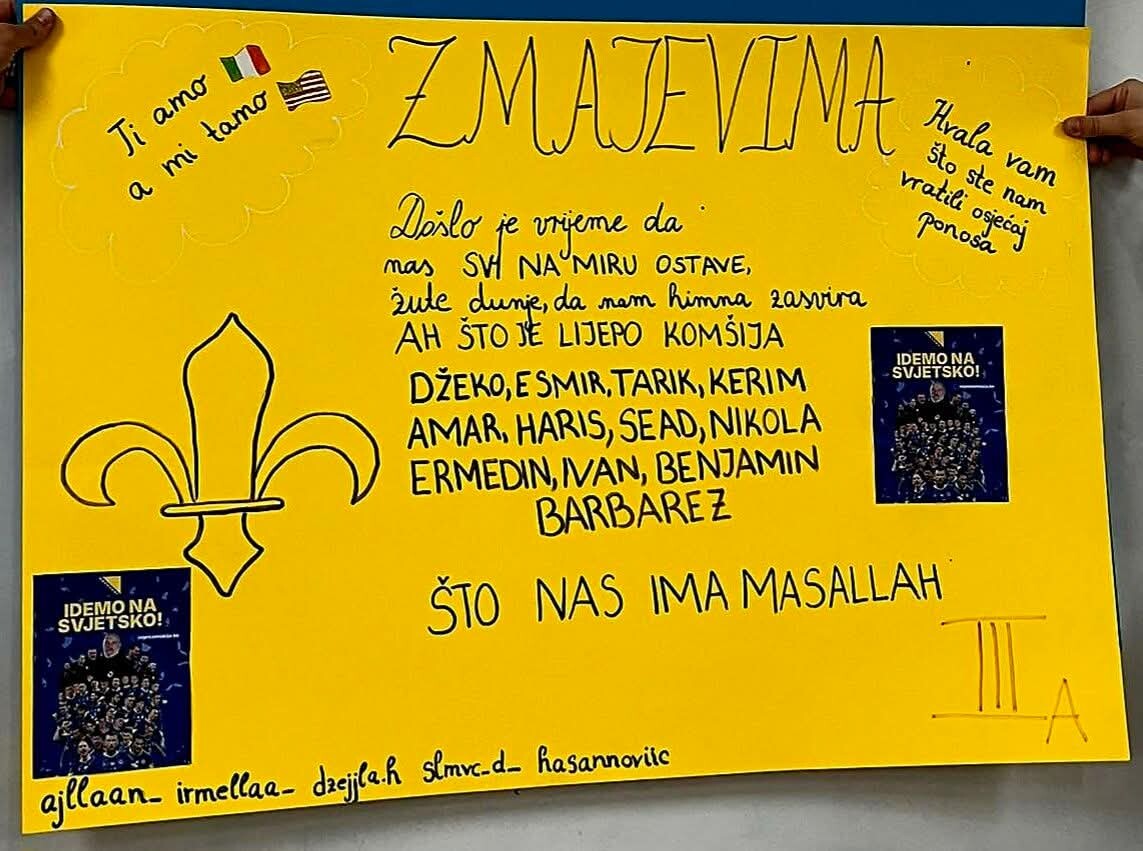 Ti amo
a mi tamo
ZMAJEVIMA
Hvala vam
što ste nam
vratili osjećaj
ponosa
Došlo je vrijeme da
nas SVI NA MIRU OSTAVE,
žute dunje, da nam himna zasvira
AH ŠTO JE LIJEPO KOMŠIJA
DŽEKO, ESMIR, TARIK, KERIM
AMAR, HARIS, SEAD, NIKOLA
ERMEDIN, IVAN, BENJAMIN
BARBAREZ
ŠTO NAS IMA MASALLAH
IDEMO NA
SVJETSKO!
IDEMO NA
SVJETSKO!
III
A
ajllaan_ irmellaa_ džejjla.h slmvc_d_ hasannoviic